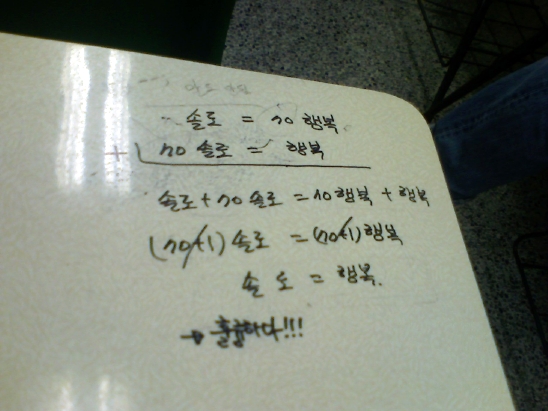 솔로 = no 행복
+ no 솔로 = 행복
솔로 + no 솔로 = no 행복 + 행복
(no+1) 솔로 = (no+1) 행복
솔로 = 행복.
→ 훌륭하다!!!